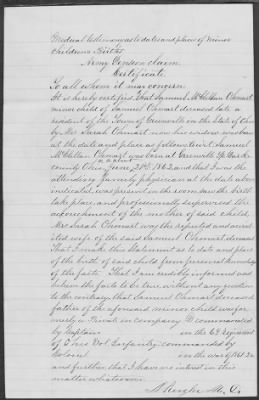 Medical testimony as to date and place of minor
children's Births
Army Pension claim.
Certificate.
To all whom it may concern.
It is hereby certified that Samuel McClellan Ohmart
minor child of Samuel Ohmart deceased late a
resident of the Town of Greenville in the State of Ohio
by Mrs Sarah Ohmart now his widow was born
at the date and place as follows to wit. Samuel
McClellan Ohmart was born at Greenville Darke
county Ohio June 1862 and that I was the
attending family physician at the date above
indicated, was present in the room saw the birth
take place, and professionally supervised the
accouchement of the mother of said child,
Mrs Sarah Ohmart was the reputed and accred
ited wife of the said Samuel Ohmart deceased
That I make this statement as to date and place
of the birth of said child from personal knowledge
of the facts. That I am credibly informed and
believe the fact to be true without any question
to the contrary that Samuel Ohmart deceased
father of the aforesaid minor child was for-
merly a Private in company commanded
by Captain in the 69 regiment
of Ohio Vol Infantry commanded by
Colonel in the war of 1861
and further that I have no interest in this
matter whatsoever.
M.D.